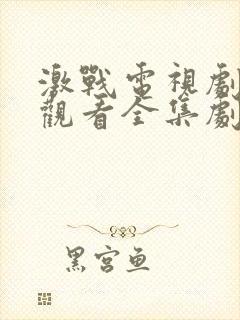 激戰電視劇
觀看全集劇
黑宮魚